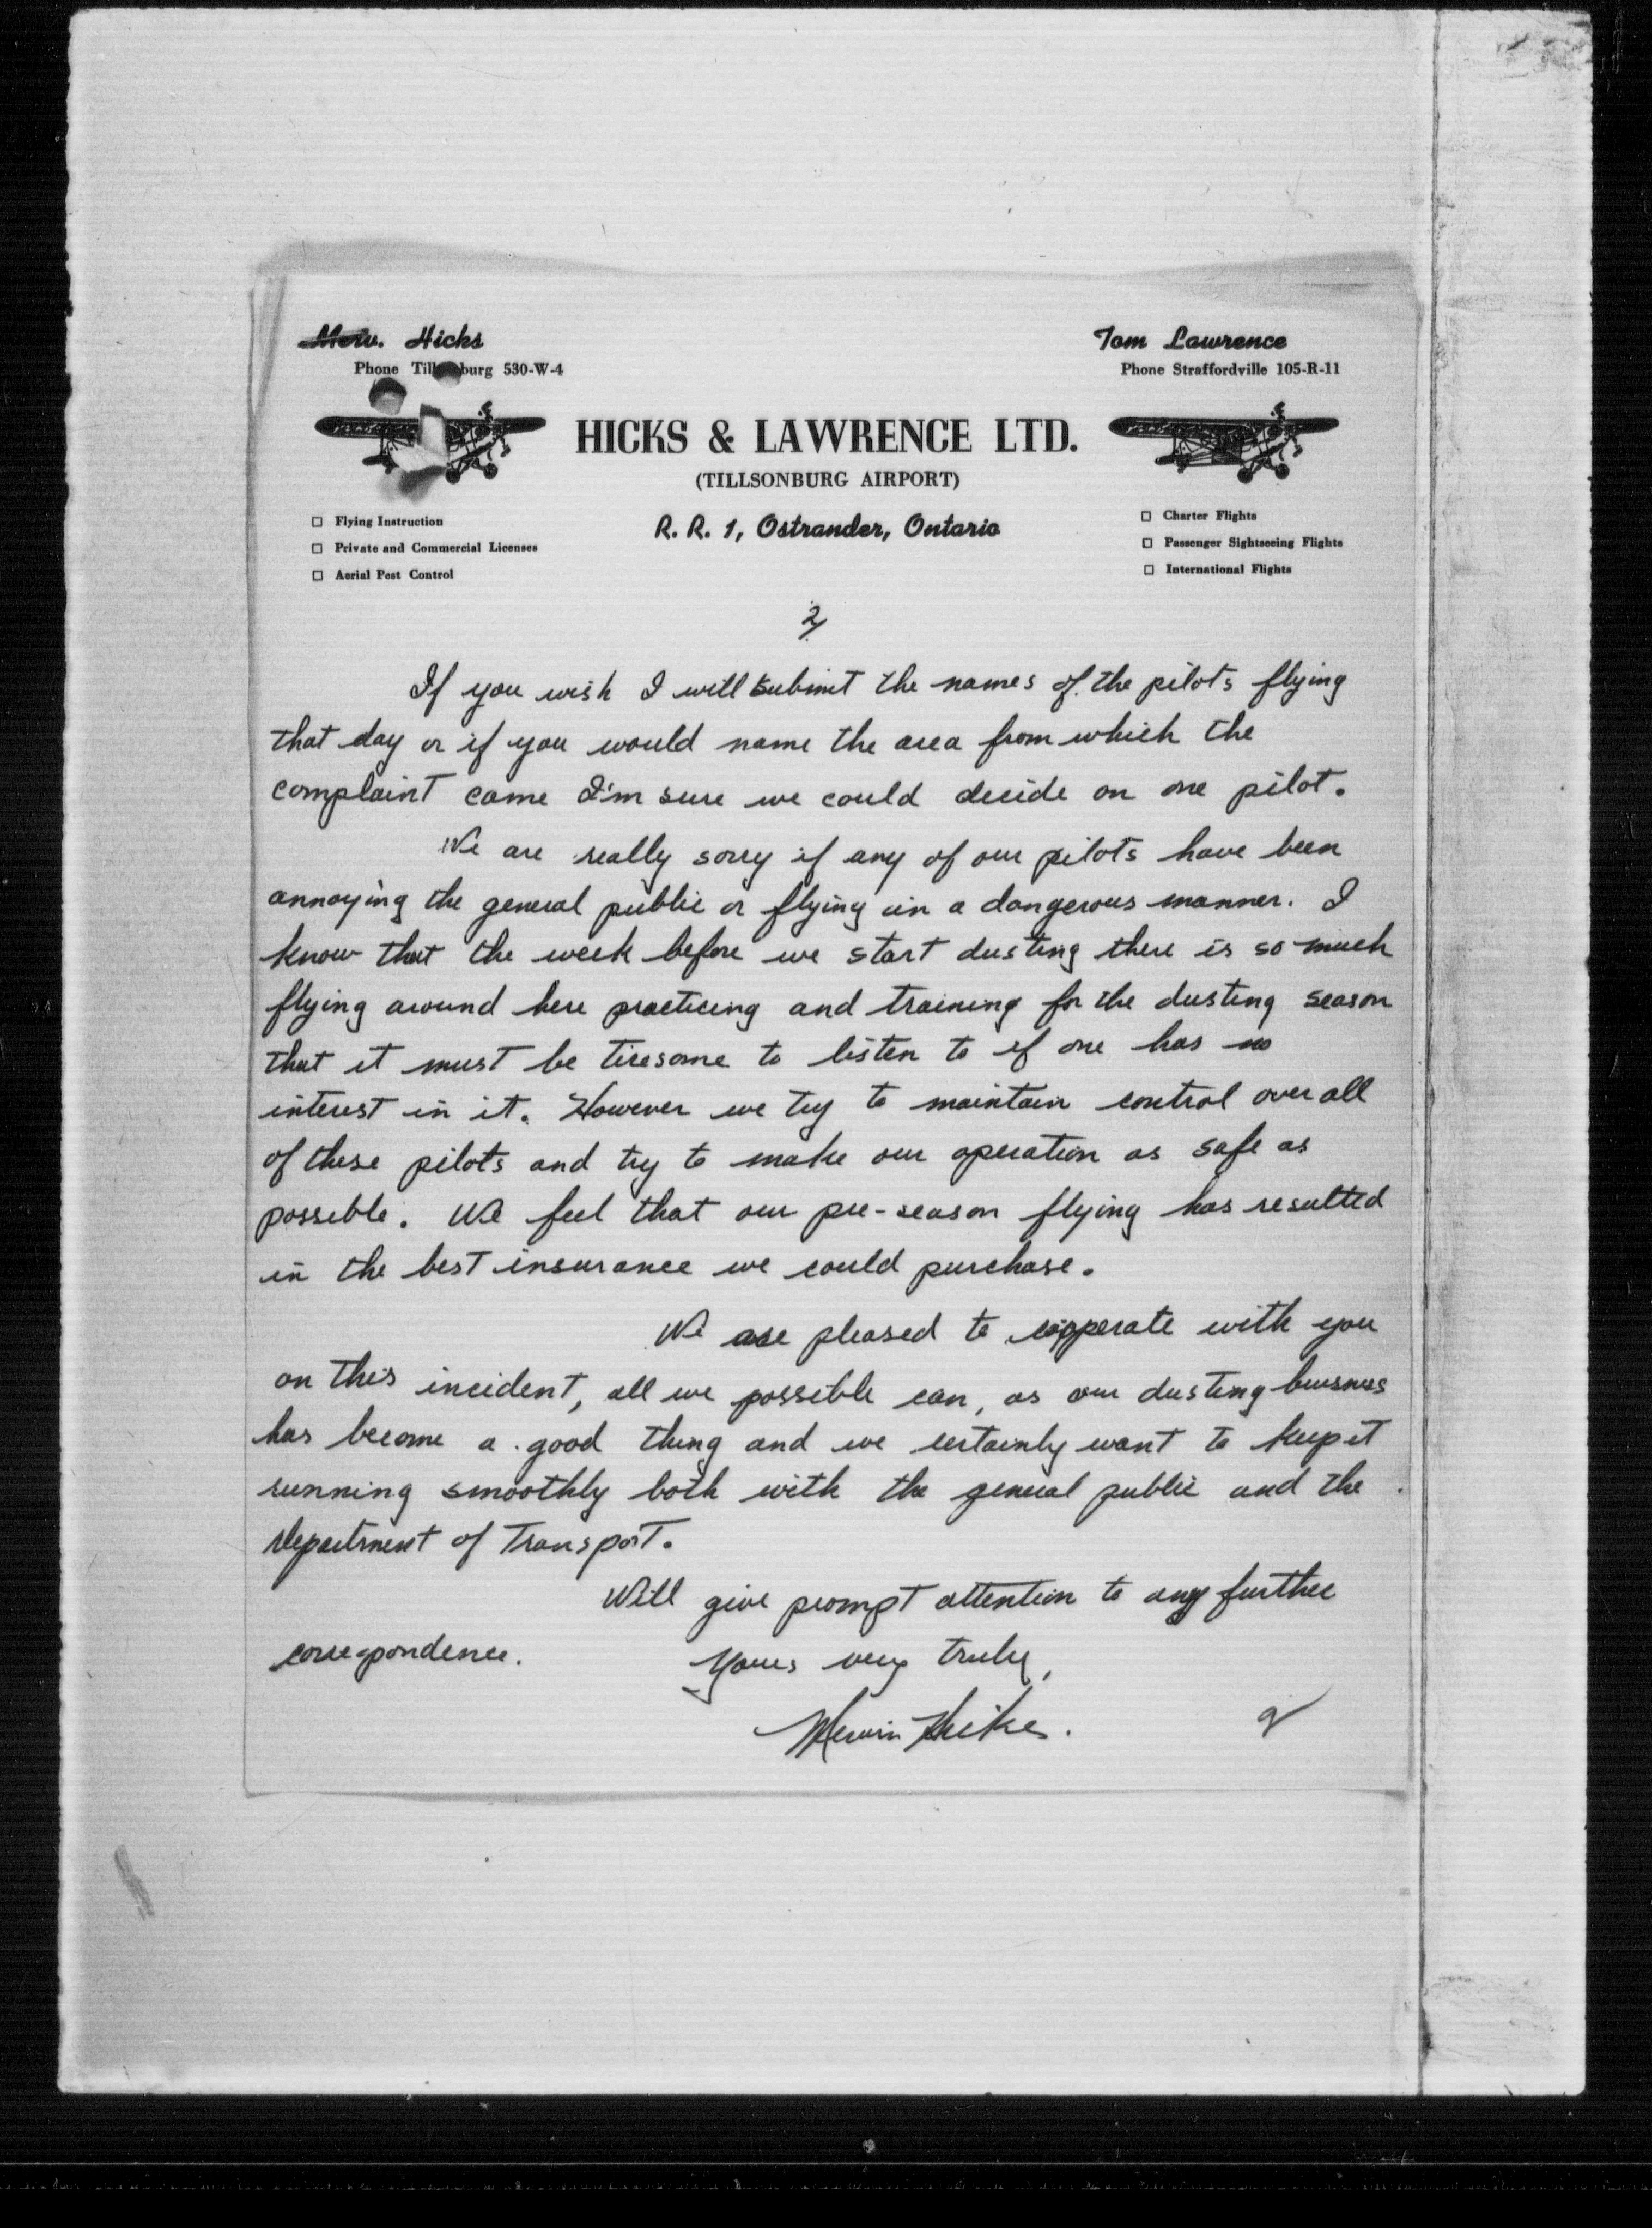 Merv. Hicks
Phone Tillsonburg 530-W-4
Tom Lawrence
Phone Straffordville 105-R-11
HICKS & LAWRENCE LTD.
(TILLSONBURG AIRPORT)
R. R. 1, Ostrander, Ontario
☐ Flying Instruction
☐ Private and Commercial Licenses
☐ Aerial Pest Control
☐ Charter Flights
☐ Passenger Sightseeing Flights
☐ International Flights
2/
If you wish I will submit the names of the pilots flying
that day or if you would name the area from which the
complaint came I'm sure we could decide on one pilot.
We are really sorry if any of our pilots have been
annoying the general public or flying in a dangerous manner. I
know that the week before we start dusting there is so much
flying around here practicing and training for the dusting season
that it must be tiresome to listen to if one has no
interest in it. However we try to maintain control over all
of these pilots and try to make our operation as safe as
possible. We feel that our pre-season flying has resulted
in the best insurance we could purchase.
We are pleased to copperate with you
on this incident, all we possible can, as our dusting business
has become a good thing and we certainly want to keep it
running smoothly both with the general public and the
Department of Transport.
Will give prompt attention to any further
correspondence.
Yours very truly,
Mervin Hicks.